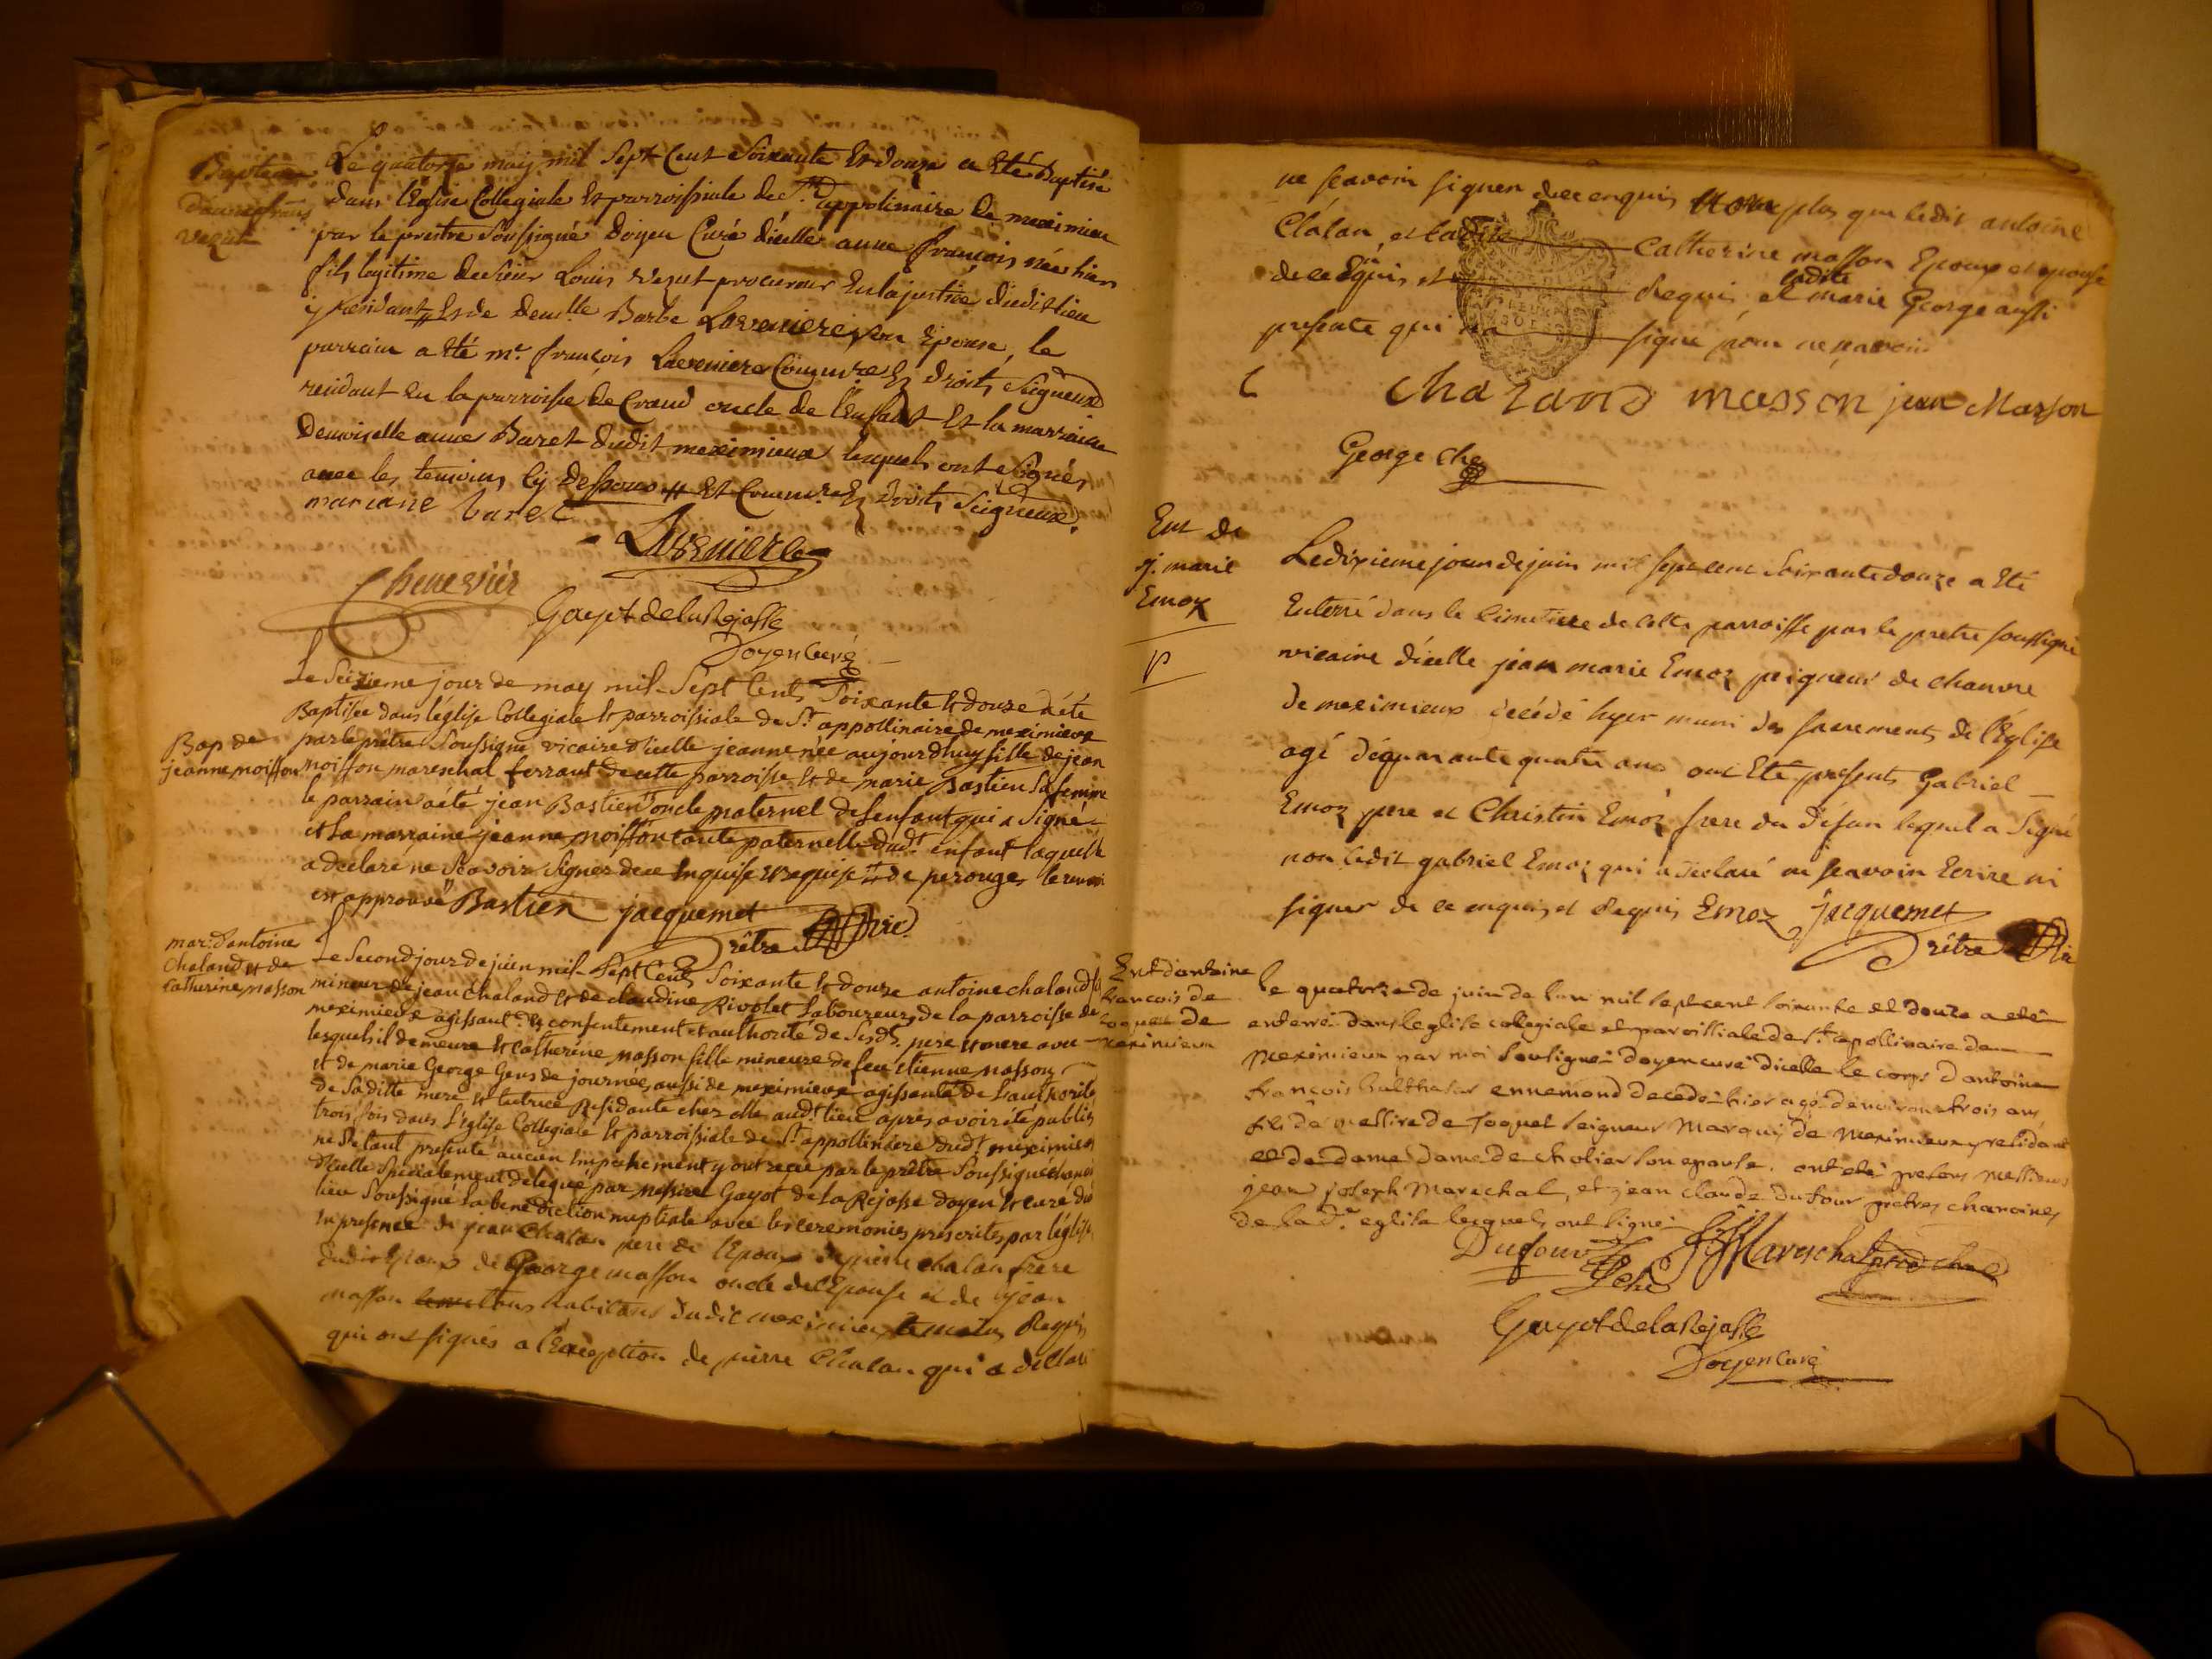 Bapteme
d'anne françois
vezut
Le quatorze maij mil Sept Cent Soixante Et douze a Eté Baptisé
dans l'Eglise Collegiale Et parroissiale de St appolinaire de meximieu
par le prestre Soussigné Doyen Curé d'icelle anne françois née hier
fils legitime de Sieur Louis vezut procureur En la justice dudit lieu
y residant # Et de demlle Barbe Laverniere son Epouse, le
parrain a Eté mr. françois Laverniere Commre. Eg droits Seigneux
residant En la parroisse de Crand oncle de l'Enfant Et la marraine
Demoiselle anne Buret dudit meximieux lesquels ont Signés
avec les temoins Cy dessous # Et Commre Eg droits Seigneux.
mariane baret
Laverniere
Chenevier
Gayot de la Rejasse
Doyen Curé
Bap de
jeanne moisson
Le Seizieme jour de may mil Sept Cent Soixante et douze a été
Baptisée dans l'eglise Collegiale et parroissiale de St. appollinaire de meximieux
par le prêtre Soussigné vicaire d'icelle jeanne née aujourdhuy fille de jean
moisson mareschal ferrant de cette parroisse et de marie Bastien Sa femme
le parrain a été jean Bastien oncle maternel de l'enfant qui a Signé
et La marraine jeanne moisson tante paternelle dudt. enfant laquelle
a declaré ne Scavoir Signer de ce Enquise et requise # de perouges le renvoi
est approuvé Bastien jacquemet
Prêtre Vic
mar: d'antoine
Chaland et de
Catherine masson
Le Second jour de juin mil Sept Cent Soixante et douze antoine chaland fils
mineur de jean chaland et de claudine Rivolet Laboureurs de la parroisse de
meximieux agissant du consentement et authorité de Sesdts. pere et mere avec
lesquels il demeure et catherine masson fille mineure de feu etienne masson
et de marie George Gens de journée, aussi de meximieux agissante de L'authorité
de Saditte mere et tutrice Residante chez elle audt lieu après avoir été publiés
trois fois dans l'Eglise Collegiale et parroissiale de St. appolliniere dudt. meximieu
ne S'etant presenté aucun Empechement y ont reçu par le prêtre Soussigné
d'icelle Specialement delegué par messire Gayot de La Rejasse doyen et curé dud
lieu Soussigné La benediction nuptiale avec les ceremonies prescrites par l'église
En presence de jean Chalan pere de l'Epoux de pierre chalan frere
dudit Epoux de George masson oncle de l'Epouse et de jean
masson tous habitans dudit meximieu temoins Requis
qui ont signés a l'Exception de pierre Chalan qui a declaré
ne scavoir signer de ce enquis non plus que ledit antoine
Chalan, et ladite Catherine masson Epoux et epouse
de ce Enquis et Requis et ladite marie George aussi
presente qui n'a signé pour ne scavoir
chaland masson jean Masson
George che
Ent de
j. marie
Emoz
Le dixieme jour de juin mil sept cent Soixante douze a Eté
Enterré dans le Cimetiere de cette parroisse par le pretre soussigné
vicaire d'icelle jean marie Emoz peigneur de chanvre
de meximieux decédé hyer muni des sacrements de l'Eglise
agé de quarante quatre ans ont Eté presents Gabriel
Emoz pere et Christin Emoz frere du défun lequel a Signé
non ledit gabriel Emoz qui a declaré ne scavoir Ecrire ni
signer de ce enquis et Requis Emoz jacquemet
Prêtre Vic
Ent d'antoine
francois de
toquet de
meximieux
le quatorze de juin de l'an mil sept cent soixante et douze a eté
enterré dans l'eglise collegiale et paroissiale de St. apollinaire de
meximieux par moi soussigné doyen curé d'icelle le corps d'antoine
françois balthasar ennemond decedé hier agé d'environ trois ans
fils de messire de Toquet seigneur Marquis de meximieux y residant
et de dame dame de cholier son epouse. ont eté presens messieurs
jean joseph Marechal, et jean claude dufour pretres chanoines
de lad.e eglise lesquels ont signé
Dufour
J J Mareschal
Gayot de la Rejasse
Doyen Curé